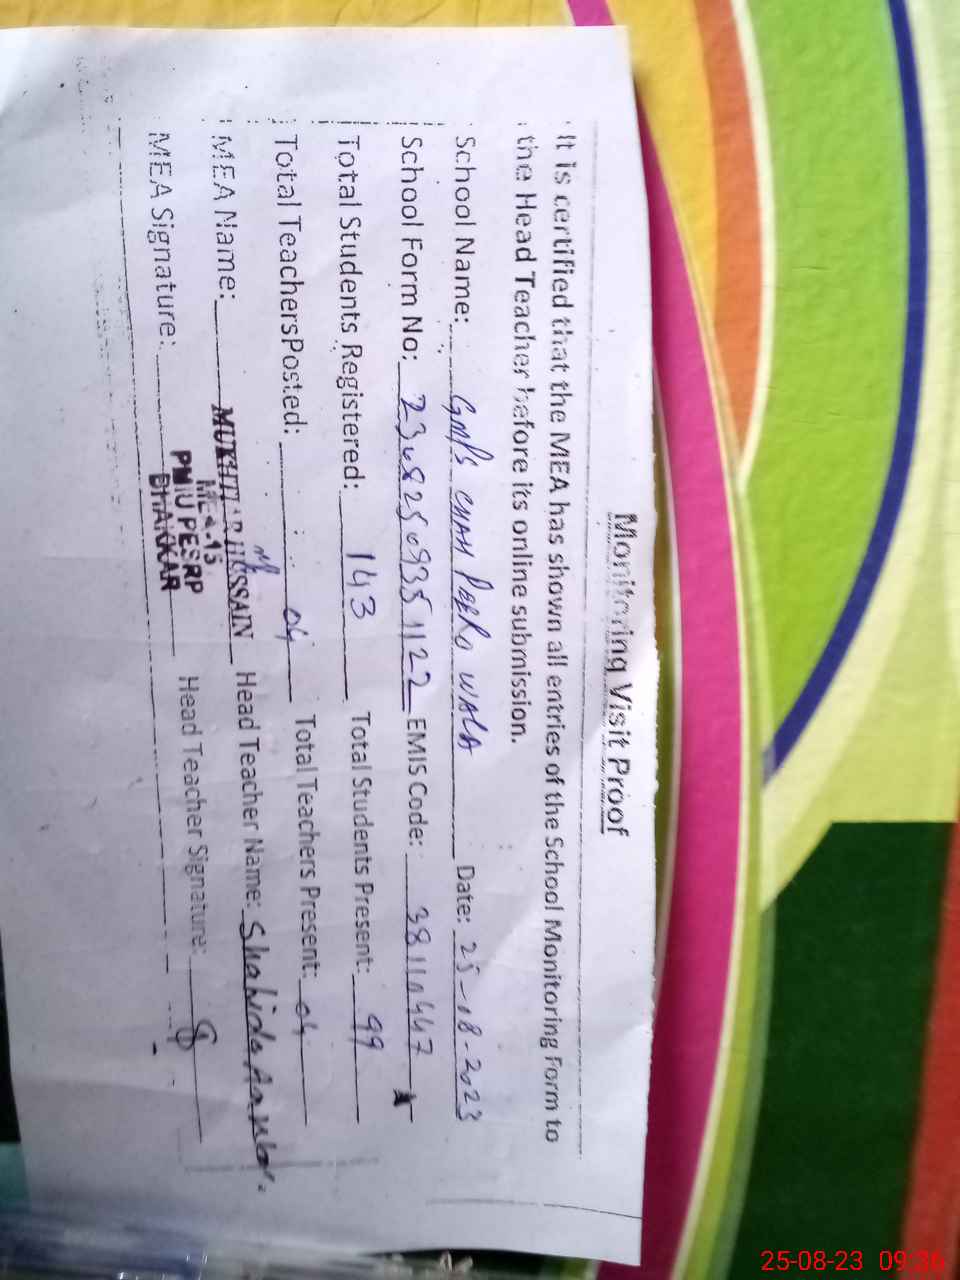 Monitoring Visit Proof
It is certified that the MEA has shown all entries of the School Monitoring Form to
the Head Teacher before its online submission.
School Name: GMPS CHAH WALA Date: 25-08-2023
School Form No: EMIS Code:
Total Students Registered: 143 Total Students Present: 99
Total Teachers Posted: 04 Total Teachers Present: 04
MEA Name: MUKHTIAR HUSSAIN Head Teacher Name: Shahida
MEA-13
PMIU PESRP
BHAKKAR
MEA Signature: Head Teacher Signature:
25-08-23 09:36